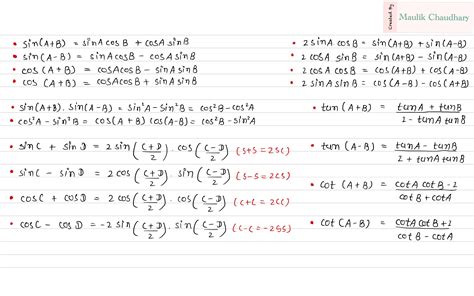 Created By
Maulik Chaudhary
• sin(A+B) = sinA cosB + cosA sinB
• sin(A-B) = sinAcosB - cosAsinB
• cos (A+B) = cosAcosB - sinAsinB
• cos (A+B) = cosAcosB + sinAsinB
• 2 sinA cosB = sin(A+B) + sin(A-B)
• 2 cosA sinB = sin(A+B) - sin(A-B)
• 2 cosA cosB = cos(A+B) + cos(A-B)
• 2 sinA sinB = cos(A-B) - cos(A+B)
• sin(A+B). sin(A-B) = sin²A - sin²B = cos²B - cos²A
• cos²A - sin²B = cos(A+B) cos(A-B) = cos²B - sin²A
• sinC + sinD = 2 sin((C+D)/2) . cos((C-D)/2) (S+S = 2SC)
• sinC - sinD = 2 cos((C+D)/2) . sin((C-D)/2) (S-S = 2CS)
• cosC + cosD = 2 cos((C+D)/2) . cos((C-D)/2) (C+C = 2CC)
• cosC - cosD = -2 sin((C+D)/2) . sin((C-D)/2) (C-C = -2SS)
• tan (A+B) = (tanA + tanB)/(1 - tanAtanB)
• tan (A-B) = (tanA - tanB)/(1 + tanAtanB)
• cot (A+B) = (cotA cotB - 1)/(cotB + cotA)
• cot (A-B) = (cotA cotB + 1)/(cotB - cotA)